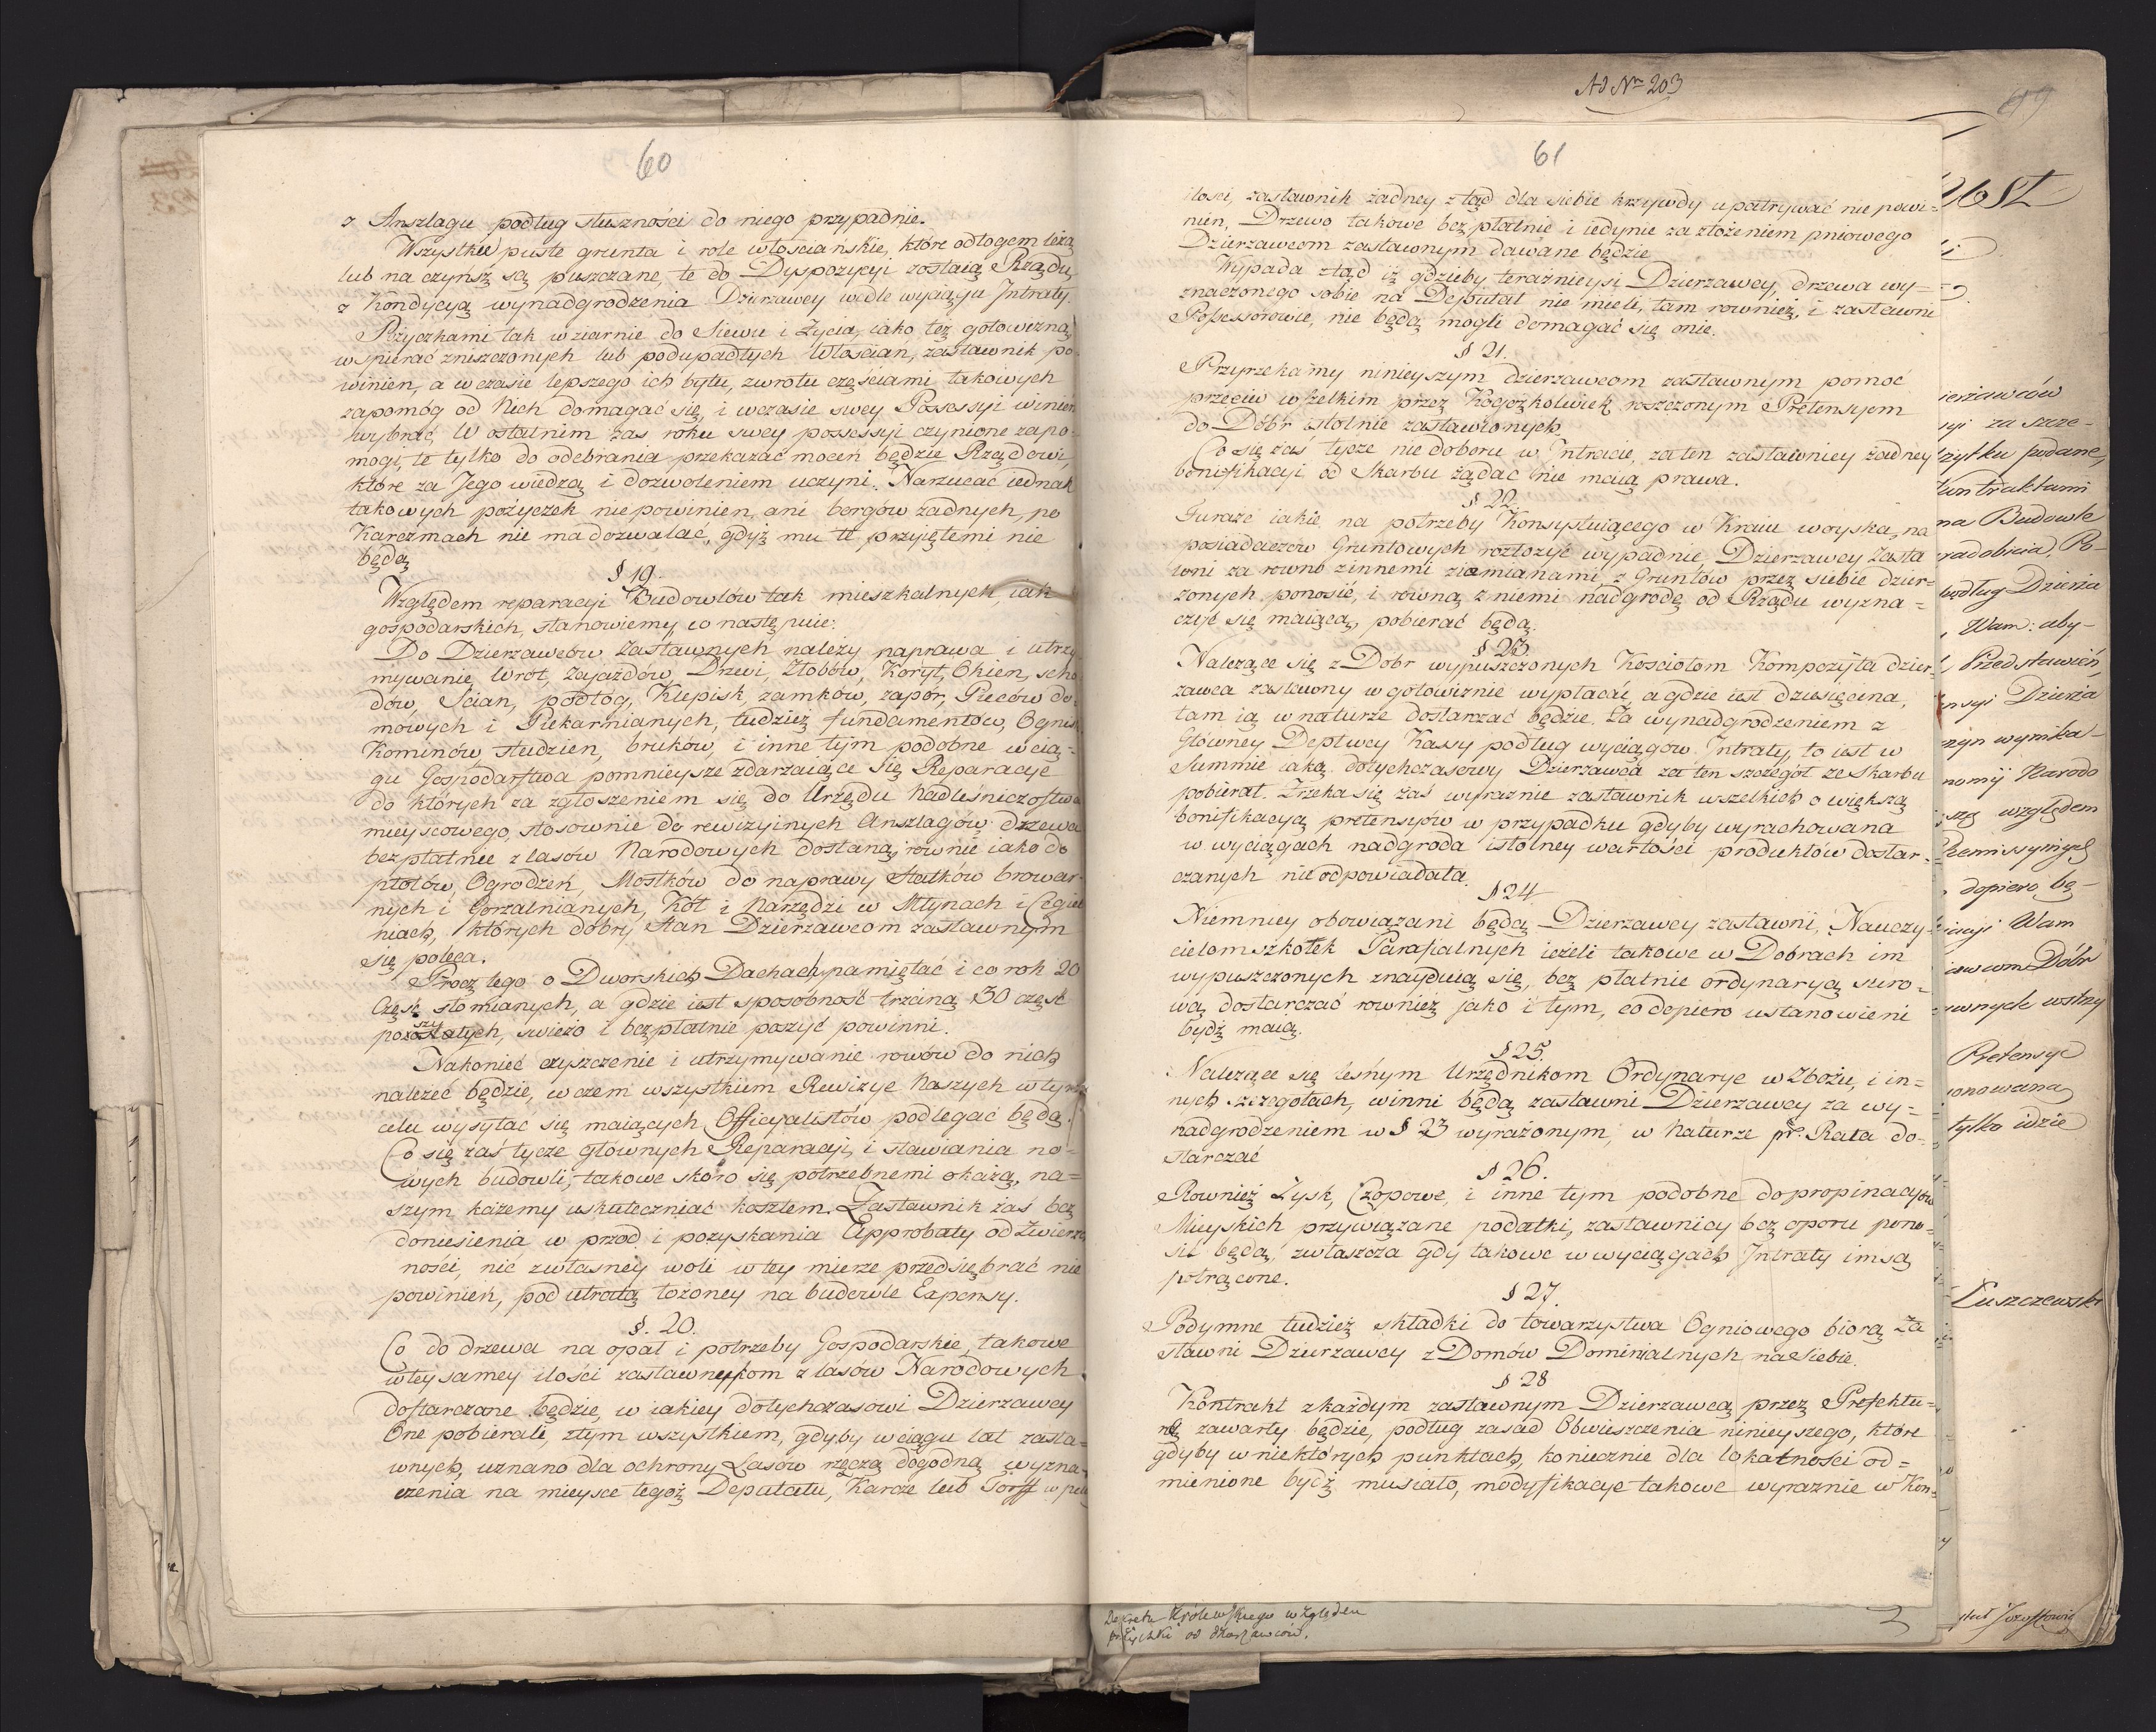 60
z Anszlagu podług słuszności do niego przypadnie.
Wszystkie puste grunta i role włościańskie, które odłogem leżą
lub na czynsz są puszczane, te do Dyspozycyi zostaią Rządu,
z Kondycyą wynadgrodzenia Dzierzawcy wedle wyciągu Intraty.
Pożyczkami tak w ziarnie do Siewu i Życia, iako też gotowizną,
wspierać zniszczonych lub podupadłych Włościan, zastawnik po-
winien, a w czasie lepszego ich bytu, zwrotu częściami takowych
zapomóg od Nich domagać się, i w czasie swey Possessyi winien
wybrać, W ostatnim zas roku swey possessyi czynione zapo-
mogi, te tylko do odebrania przekazać mocen będzie Rządowi,
które za Jego wiedzą i dozwoleniem uczyni. Narzucać iednak
takowych pożyczek nie powinien, ani borgów żadnych, po
Karczmach nie ma dozwalać, gdyż mu te przyiętemi nie
będą
§ 19.
Względem reparacyi Budowlów tak mieszkalnych, iak
gospodarskich, stanowiemy, co następuie:
Do Dzierzawców Zastawnych należy naprawa i utrzy-
mywanie, Wrót, Zajazdów, Drzwi, Złobów, Koryt, Okien, scho-
dów, Ścian, podłóg, Klepisk, zamków, zapór, Pieców do-
mowych i Piekarnianych, tudzież fundamentów, Ognisk
Kominów, studzien, bruków, i inne tym podobne w cią-
gu Gospodarstwa pomnieysze zdarzaiące się Reparacye
do których za zgłoszeniem się do Urzędu Nadleśniczostwa
mieyscowego, stosownie do rewizyinych Anszlagów drzewa
bezpłatnie z lasów Narodowych dostaną, równie iako do
płotów, Ogrodzeń, Mostków do naprawy Statków browar-
nych i Gorzalnianych, Kół i Narzędzi w Młynach i Cegiel
niach, których dobry Stan Dzierzawcom zastawnym
się poleca.
Procz tego o Dworskich Dachach pamiętać i co rok 20
Część słomianych, a gdzie iest sposobność trzciną 30 część
pozostałych, swieżo i bezpłatnie poszyć powinni.
Nakoniec czyszczenie i utrzymywanie rowów do nich
należeć będzie, w czem wszystkiem Rewizye Naszych w tym
celu wysyłac się maiących Officyalistów podlegać będą.
Co się zaś tycze głównych Reparacyi, i stawiania no-
wych budowli, takowe skoro się potrzebnemi okażą, na=
szym każemy uskuteczniać kosztem. Zastawnik żaś bez
doniesienia w przod i pozyskania Approbaty od Zwierzch
ności, nic z własney woli w tey mierze przedsiębrać nie
powinien, pod utratą łożoney na budowle Expensy.
§. 20.
Co do drzewa na opał i potrzeby Gospodarskie, takowe
w tey samey ilości zastawnikom z lasów Narodowych
dostarczane będzie, w iakiey dotychczasowi Dzierzawcy
One pobierali, z tym wszystkiem, gdyby w ciągu lat zasta=
wnych, uznano dla ochrony Lasów rzeczą dogodną wyzna-
czenia na mieysce tegoż Deputatu, Karcze lub Torff w pew
Ad Nr 203
61
ilosci, zastawnik żadney ztąd dla siebie krzywdy upatrywać nie powi=
nien, Drzewo takowe bezpłatnie i iedynie za złożeniem pniowego
Dzierzawcom zastawnym dawane będzie
Wypada ztąd iż gdzieby teraznieysi Dzierzawcy, drzewa wy=
znaczonego sobie na Deputat nie mieli, tam rownież, i zastawni
Possessorowie, nie będą mogli domagać się onie.
§ 21.
Przyrzekamy ninieyszym dzierzawcom zastawnym pomoc
przeciw wszelkim przez Kogożkolwiek roszczonym Pretensyom
do Dóbr istotnie zastawionych
Co się zaś tycze niedoboru w Intracie, za ten zastawnicy żadney
bonifikacyi od Skarbu żądać nie maią prawa.
§ 22.
Furaże iakie na potrzeby Konsystuiącego w Kraiu woyska, na
posiadaczów Gruntowych rozłożyć wypadnie, Dzierzawcy Zasta
wni za rowno z innemi ziemianami, z Gruntów przez siebie dzier=
zonych ponosić, i równą z niemi nadgrodę od Rządu wyzna=
czyć się maiącą, pobierać będą.
§ 23
Należące się z Dobr wypuszczonych Kosciołom Kompozyta dzier=
zawca zastawny w gotowiznie wypłacać, a gdzie iest dziesięcina,
tam ią w naturze dostarczać będzie. Za wynadgrodzeniem z
Główney Deptwey Kassy podług wyciągow Intraty, to iest w
Summie iaką dotychczasowy Dzierzawca za ten szczegół ze Skarbu
pobierał. Zrzeka się zaś wyraznie zastawnik wszelkich o większą
bonifikacyą pretensyów w przypadku gdyby wyrachowana
w wyciągach nadgroda istotney wartości produktów dostar=
czanych nie odpowiadała.
§ 24.
Niemniey obowiązani będą Dzierzawcy zastawni, Nauczy=
cielom szkołek Parafialnych ieżeli takowe w Dobrach im
wypuszczonych znayduią się, bezpłatnie ordynaryą suro=
wą dostarczać rownież jako i tym, co dopiero ustanowieni
bydź maią.
§ 25.
Należące się leśnym Urzędnikom Ordynarye w Zbożu, i in=
nych szczegołach, winni będą zastawni Dzierzawcy za wy=
nadgrodzeniem w § 23 wyrażonym, w Naturze pr. Rata do=
starczać
§ 26.
Rownież Zysk, Czopowe, i inne tym podobne do propinacyów
Mieyskich przywiązane podatki, zastawnicy bez oporu pono=
sić będą, zwłaszcza gdy takowe w wyciągach Intraty im są
potrącone.
§ 27.
Podymne tudzież składki do towarzystwa Ogniowego biorą Za
stawni Dzierzawcy z Domów Dominialnych na siebie.
§ 28
Kontrakt z każdym zastawnym Dzierzawcą przez Prefektu=
rę zawarty będzie, podług zasad Obwieszczenia ninieyszego, które
gdyby w niektórych punktach, koniecznie dla lokalności od=
mienione bydź musiało, modyfikacye takowe wyraznie w Kon=
Dekretu Królewskiego względem
pożyczki od dzierzawców.
ierzawców
yi za szcze-
zytku podane,
Kontraktami
na Budowle
radobicia, Po-
podług Dzierża
Wam: aby-
Przedstawień,
ensyi Dzierża
wynika-
nomij Narodo
względem
Remissyinych
dopiero bę-
Wam
Dóbr
wstrzy
Pretensye
onowana
tylko idzie
Łuszczewski